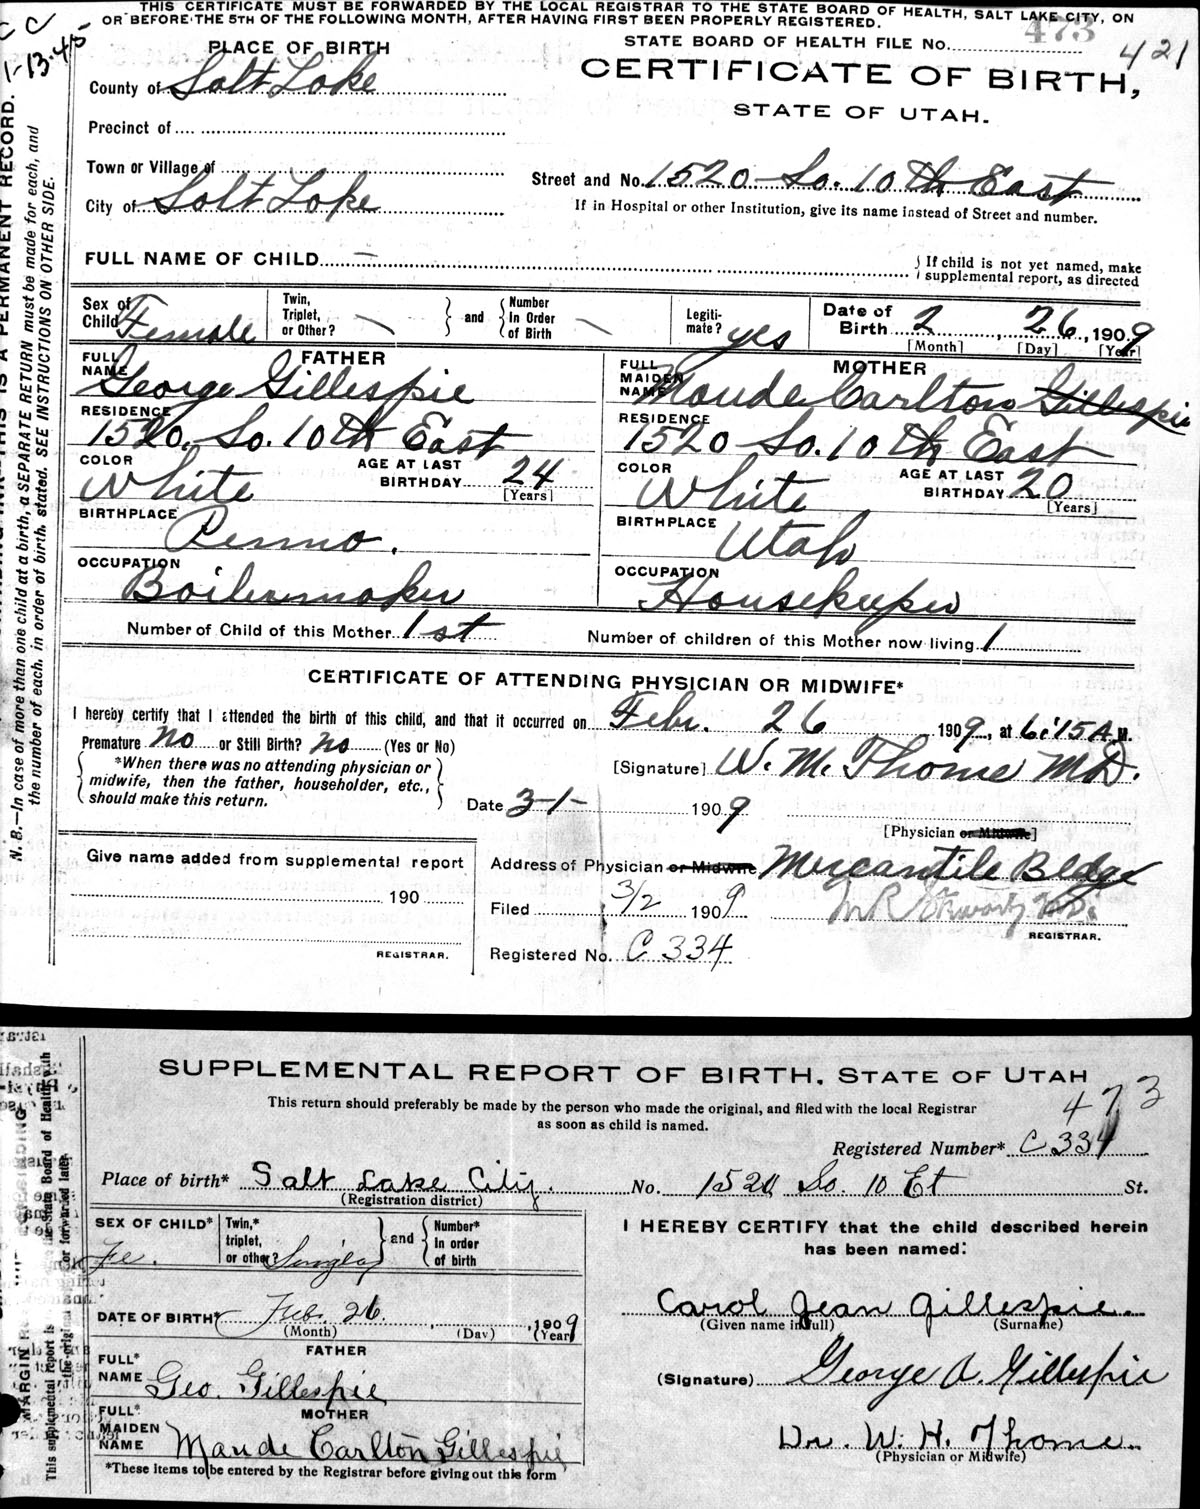 THIS CERTIFICATE MUST BE FORWARDED BY THE LOCAL REGISTRAR TO THE STATE BOARD OF HEALTH, SALT LAKE CITY, ON
OR BEFORE THE 5TH OF THE FOLLOWING MONTH, AFTER HAVING FIRST BEEN PROPERLY REGISTERED.
1-13-45
473
421
PLACE OF BIRTH
STATE BOARD OF HEALTH FILE No.
County of Salt Lake
CERTIFICATE OF BIRTH,
STATE OF UTAH.
Precinct of
Town or Village of
Street and No. 1520 So. 10th East
City of Salt Lake
If in Hospital or other Institution, give its name instead of Street and number.
FULL NAME OF CHILD —
If child is not yet named, make
supplemental report, as directed
Sex of Child Female
Twin, Triplet, or Other? —
and
Number In Order of Birth —
Legiti-mate? yes
Date of Birth 2, 26, 1909
[Month] [Day] [Year]
FATHER
MOTHER
FULL NAME George Gillespie
FULL MAIDEN NAME Maude Carlton Gillespie
RESIDENCE 1520 So. 10th East
RESIDENCE 1520 So. 10th East
COLOR White
AGE AT LAST BIRTHDAY 24 [Years]
COLOR White
AGE AT LAST BIRTHDAY 20 [Years]
BIRTHPLACE Penna.
BIRTHPLACE Utah
OCCUPATION Boilermaker
OCCUPATION Housekeeper
Number of Child of this Mother 1st
Number of children of this Mother now living 1
CERTIFICATE OF ATTENDING PHYSICIAN OR MIDWIFE*
I hereby certify that I attended the birth of this child, and that it occurred on Febr. 26 1909, at 6:15 A.M.
Premature no or Still Birth? no (Yes or No)
*When there was no attending physician or
midwife, then the father, householder, etc.,
should make this return.
[Signature] W. M. Thome MD.
Date 3-1- 1909
[Physician or Midwife]
Give name added from supplemental report
190
REGISTRAR.
Address of Physician or Midwife Mercantile Bldg
Filed 3/2 1909
REGISTRAR.
Registered No. C 334
N. B.—In case of more than one child at a birth, a SEPARATE RETURN must be made for each, and
the number of each, in order of birth, stated. SEE INSTRUCTIONS ON OTHER SIDE.
THIS IS A PERMANENT RECORD.
SUPPLEMENTAL REPORT OF BIRTH, STATE OF UTAH
This return should preferably be made by the person who made the original, and filed with the local Registrar
as soon as child is named.
473
Registered Number* C 334
Place of birth* Salt Lake City. No. 1520 So. 10 Et St.
(Registration district)
SEX OF CHILD* Fe.
Twin,* triplet, or other? Single
and
Number* In order of birth
I HEREBY CERTIFY that the child described herein
has been named:
DATE OF BIRTH* Feb. 26, 1909
(Month) (Day) (Year)
Carol Jean Gillespie.
(Given name in full) (Surname)
FATHER
FULL* NAME Geo. Gillespie
(Signature) George A. Gillespie
MOTHER
FULL* MAIDEN NAME Maude Carlton Gillespie
Dr. W. H. Thome.
(Physician or Midwife)
*These items to be entered by the Registrar before giving out this form